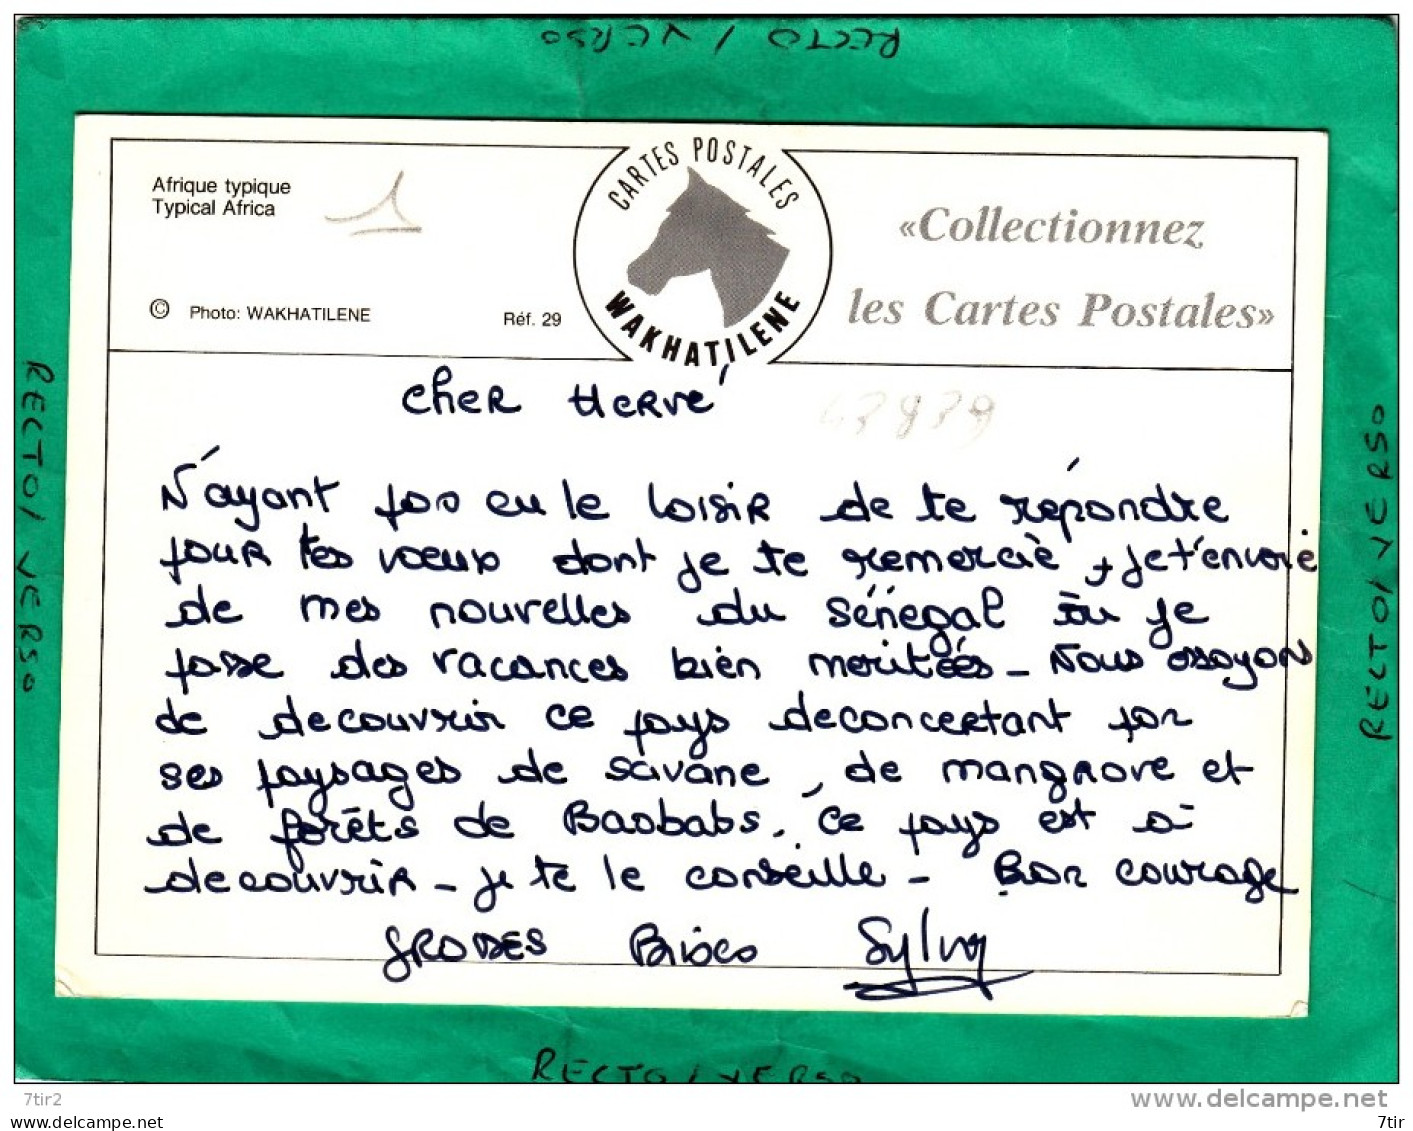 RECTO / VERSO
Afrique typique
Typical Africa
© Photo: WAKHATILENE
Réf. 29
CARTES POSTALES
WAKHATILENE
«Collectionnez
les Cartes Postales»
Cher Hervé
N'ayant pas eu le loisir de te répondre
pour tes voeux dont je te remercie, je t'envoie
de mes nouvelles du Sénégal où je
passe des vacances bien meritées - Nous essayons
de decouvrir ce pays deconcertant par
ses paysages de savane, de mangrove et
de forêts de Baobabs. Ce pays est à
decouvrir - je te le conseille - Bon courage
GROSSES Bises
RECTO / VERSO
RECTO / VERSO
RECTO / VERSO
www.delcampe.net
7tir2
www.delcampe.net
7tir